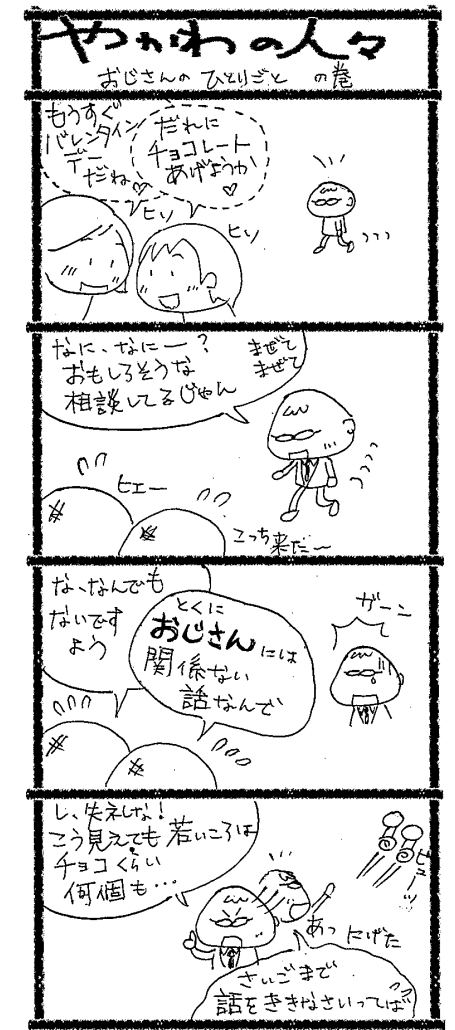 やかわの人々
おじさんの ひとりごと の巻
もうすぐ
バレンタイン
デー
だね♡
だれに
チョコレート
あげようか
♡
ヒソ
ヒソ
なに、なにー?
おもしろそうな
相談してるじゃん
まぜて
まぜて
ヒエー
こっち来だ〜
な、なんでも
ないです
よう
とくに
おじさんには
関係ない
話なんで
ガーン
し、失ネレな!
こう見えても若いころは
チョコくらい
何個も…
ビューッ
あっ にげた
さいごまで
話をききなさいってば